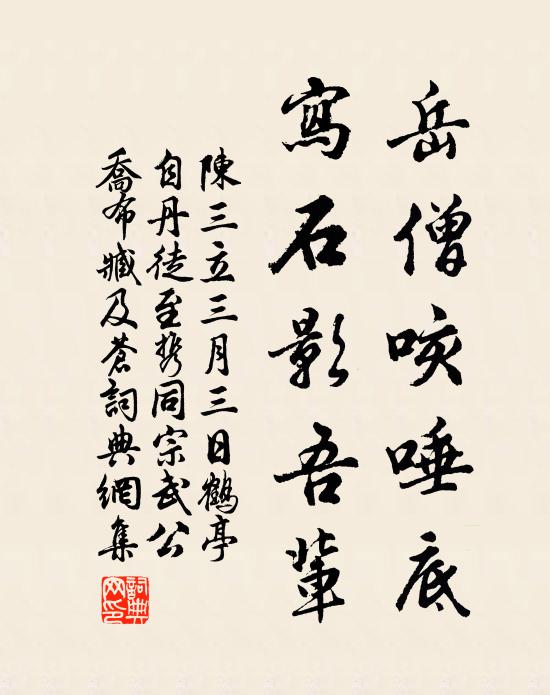 岳僧咳唾底
寫石影吾輩
陳三立三月三日鶴亭
自丹徒至携同宗武公
喬布臧及蒼詞典網集
詞典網印